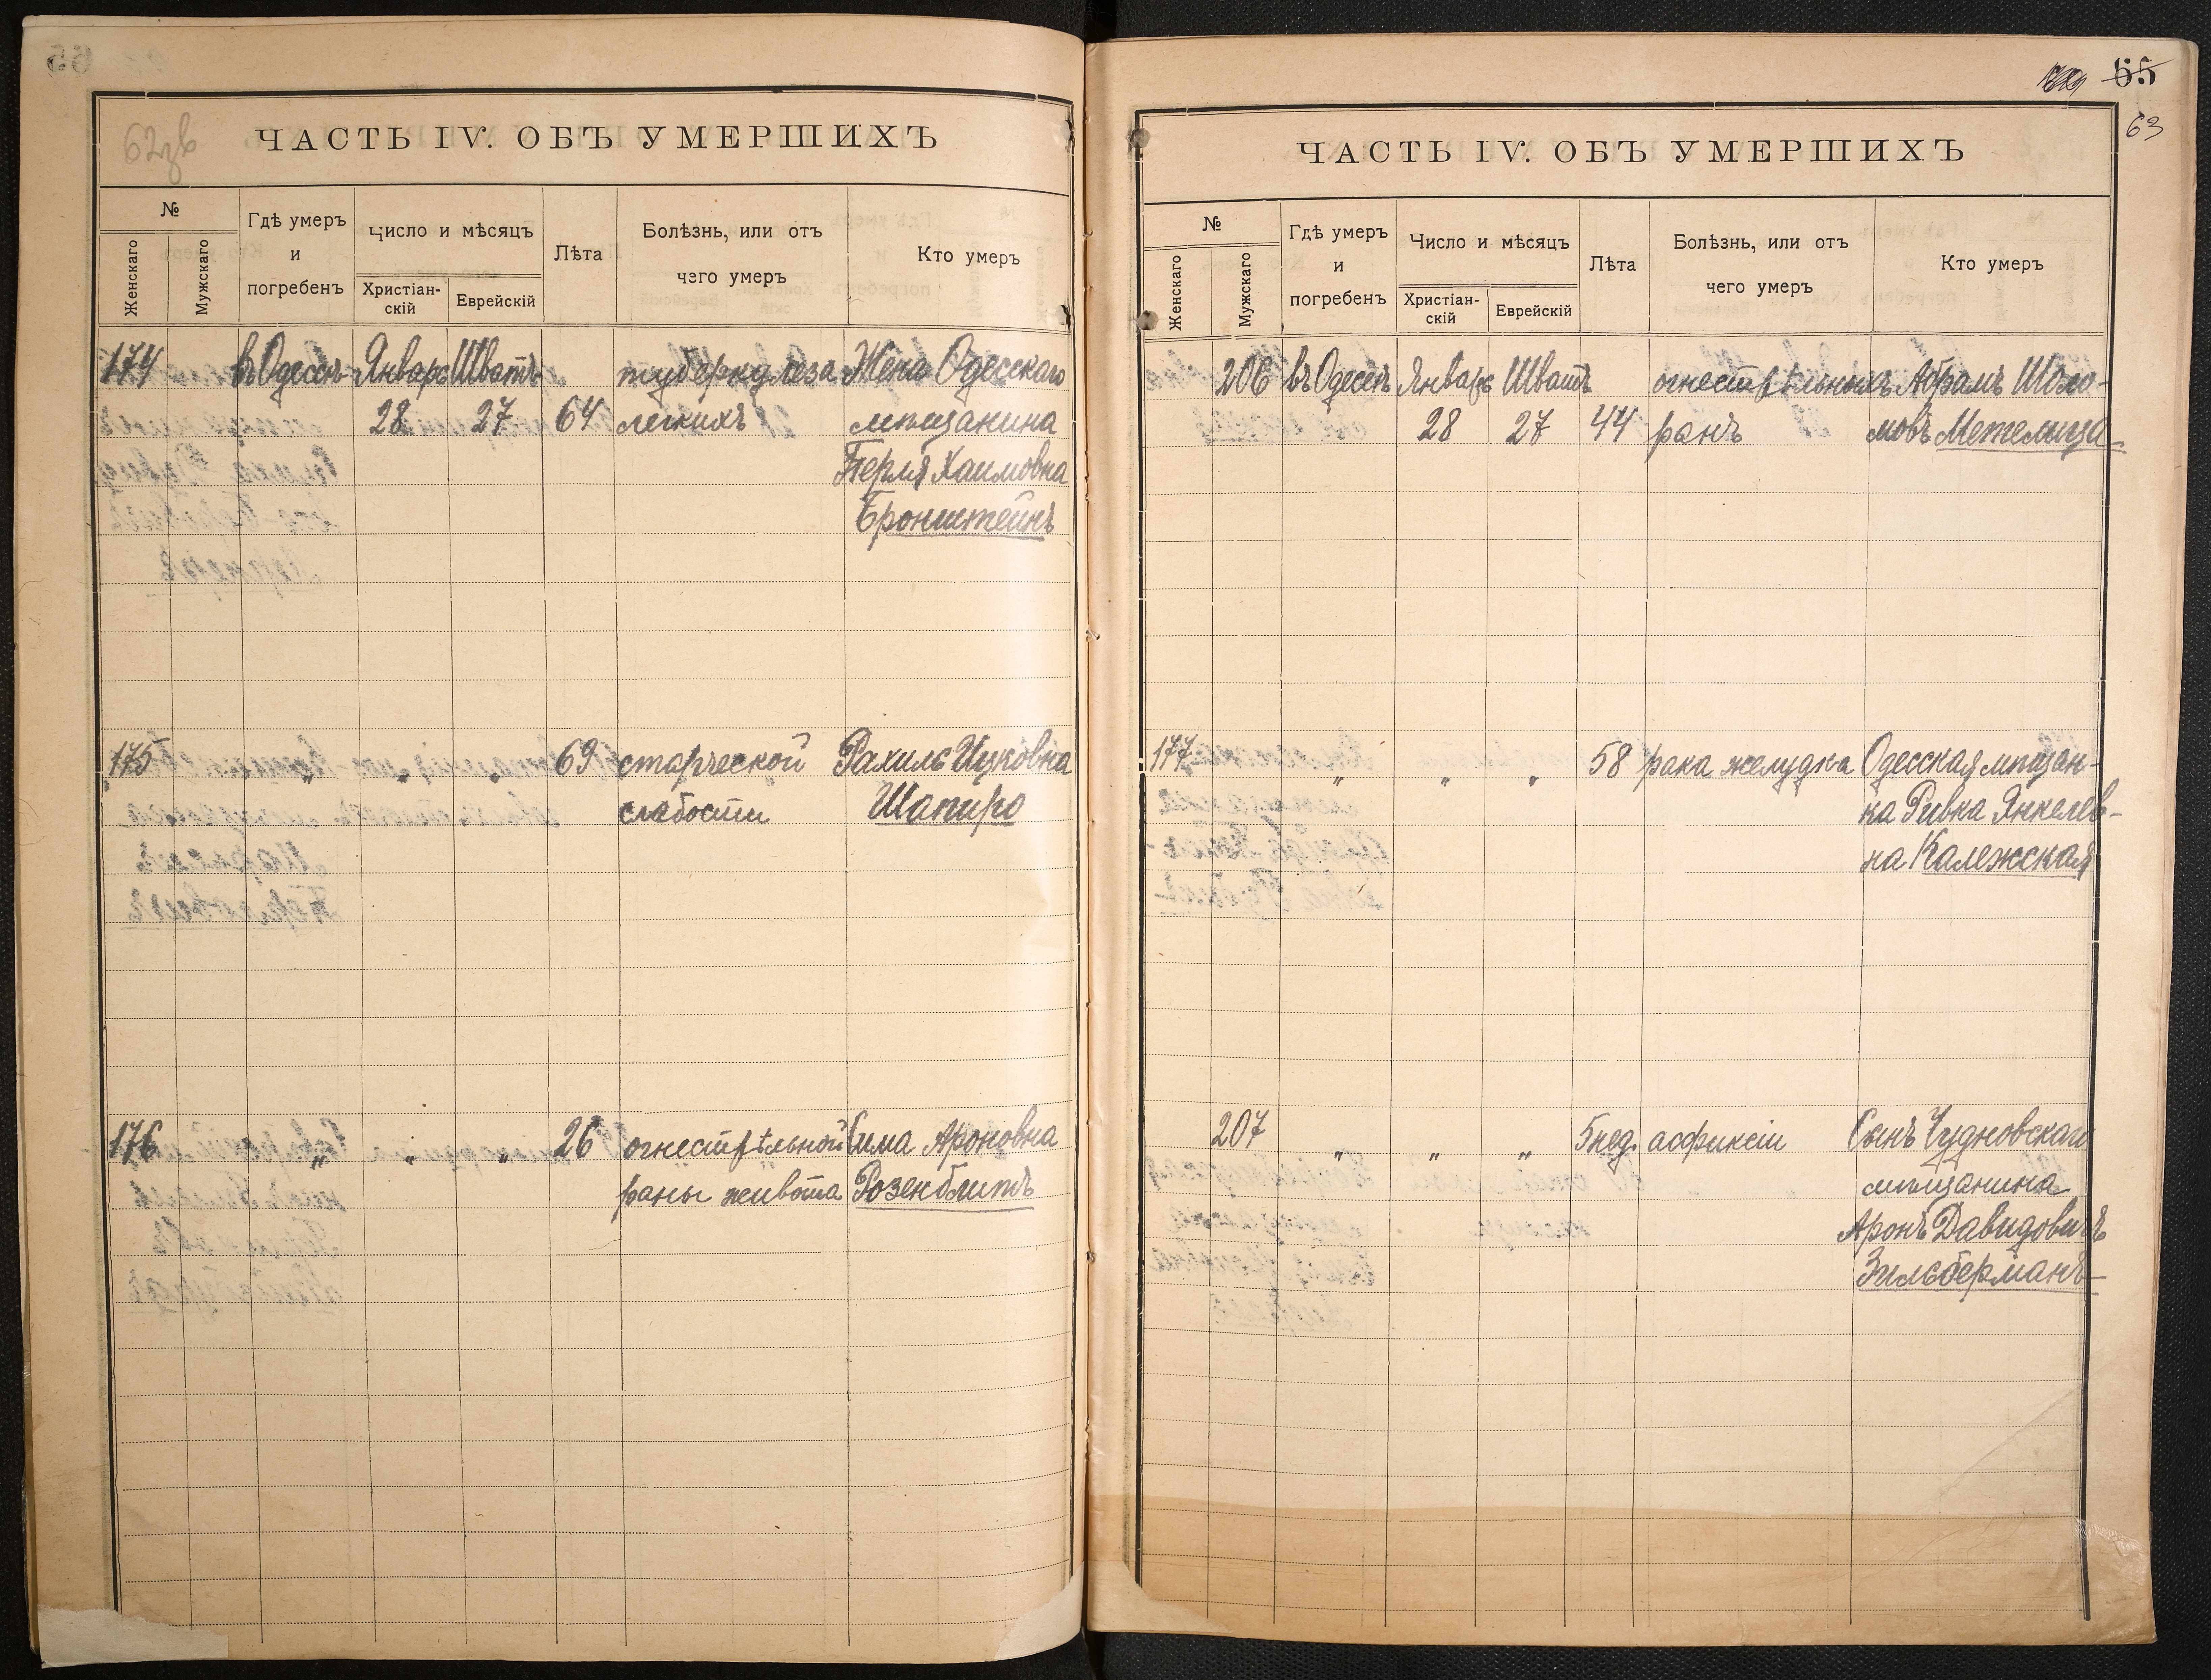 62зв
ЧАСТЬ IV. ОБЪ УМЕРШИХЪ
№
Женскаго
Мужскаго
Гдѣ умеръ
и
погребенъ
Число и мѣсяцъ
Христіан-
скій
Еврейскій
Лѣта
Болѣзнь, или отъ
чего умеръ
Кто умеръ
174 въ Одессѣ Январь Шватъ туберкулеза Жена Одесскаго
28 27 64 легкихъ мѣщанина
Перля Хаимовна
Бронштейнъ
175 " " " 69 старческой Рахиль Ицковна
слабости Шапиро
176 " " " 26 огнестрѣльной Сима Ароновна
раны живота Розенблитъ
55
63
ЧАСТЬ IV. ОБЪ УМЕРШИХЪ
№
Женскаго
Мужскаго
Гдѣ умеръ
и
погребенъ
Число и мѣсяцъ
Христіан-
скій
Еврейскій
Лѣта
Болѣзнь, или отъ
чего умеръ
Кто умеръ
206 въ Одессѣ Январь Шватъ огнестрѣльныхъ Абрамъ Шоло-
28 27 44 ранъ мовъ Метелица
177 " " " 58 рака желудка Одесская мѣщан-
ка Ривка Янкелев-
на Калежская
207 " " " 5 нед. асфиксіи Сынъ Чудновскаго
мѣщанина
Аронъ Давидовичъ
Зильберманъ